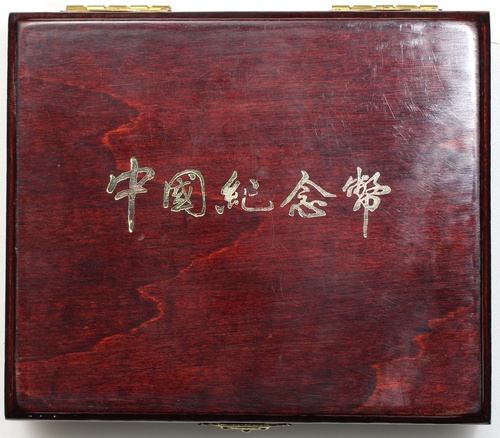 中國紀念幣